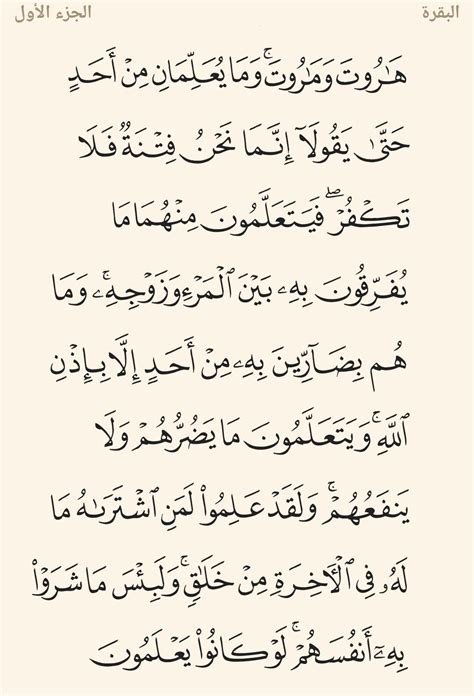 البقرة الجزء الأول
هَـٰرُوتَ وَمَـٰرُوتَۚ وَمَا يُعَلِّمَانِ مِنۡ أَحَدٍ
حَتَّىٰ يَقُولَآ إِنَّمَا نَحۡنُ فِتۡنَةٞ فَلَا
تَكۡفُرۡۖ فَيَتَعَلَّمُونَ مِنۡهُمَا مَا
يُفَرِّقُونَ بِهِۦ بَيۡنَ ٱلۡمَرۡءِ وَزَوۡجِهِۦۚ وَمَا
هُم بِضَآرِّينَ بِهِۦ مِنۡ أَحَدٍ إِلَّا بِإِذۡنِ
ٱللَّهِۚ وَيَتَعَلَّمُونَ مَا يَضُرُّهُمۡ وَلَا
يَنفَعُهُمۡۚ وَلَقَدۡ عَلِمُواْ لَمَنِ ٱشۡتَرَىٰهُ مَا
لَهُۥ فِي ٱلۡأٓخِرَةِ مِنۡ خَلَٰقٖۚ وَلَبِئۡسَ مَا شَرَوۡاْ
بِهِۦٓ أَنفُسَهُمۡۚ لَوۡ كَانُواْ يَعۡلَمُونَ